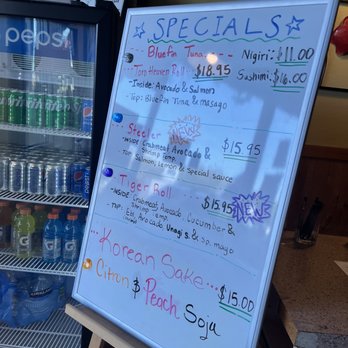 pepsi
SPECIALS
Bluefin Tuna Nigiri: $11.00
Sashimi: $16.00
Toro Heaven Roll: $18.95
-Inside: Avocado & Salmon
- Top: Bluefin Tuna & masago
Steeler NEW $15.95
-Inside: Crabmeat, Avocado & Shrimp Temp.
Top: Salmon, Lemon & Special sauce
Tiger Roll $15.95 NEW
-Inside: Crabmeat, Avocado, Cucumber & Shrimp Temp.
-Top: Eel, Avocado, Unagi s. & sp. mayo
Korean Sake $15.00
Citron & Peach Soju